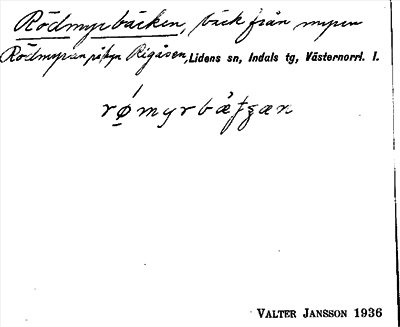 Rödmyrbäcken, bäck från myren
Rödmyran på Rigåsen, Lidens sn, Indals tg, Västernorrl. l.
VALTER JANSSON 1936